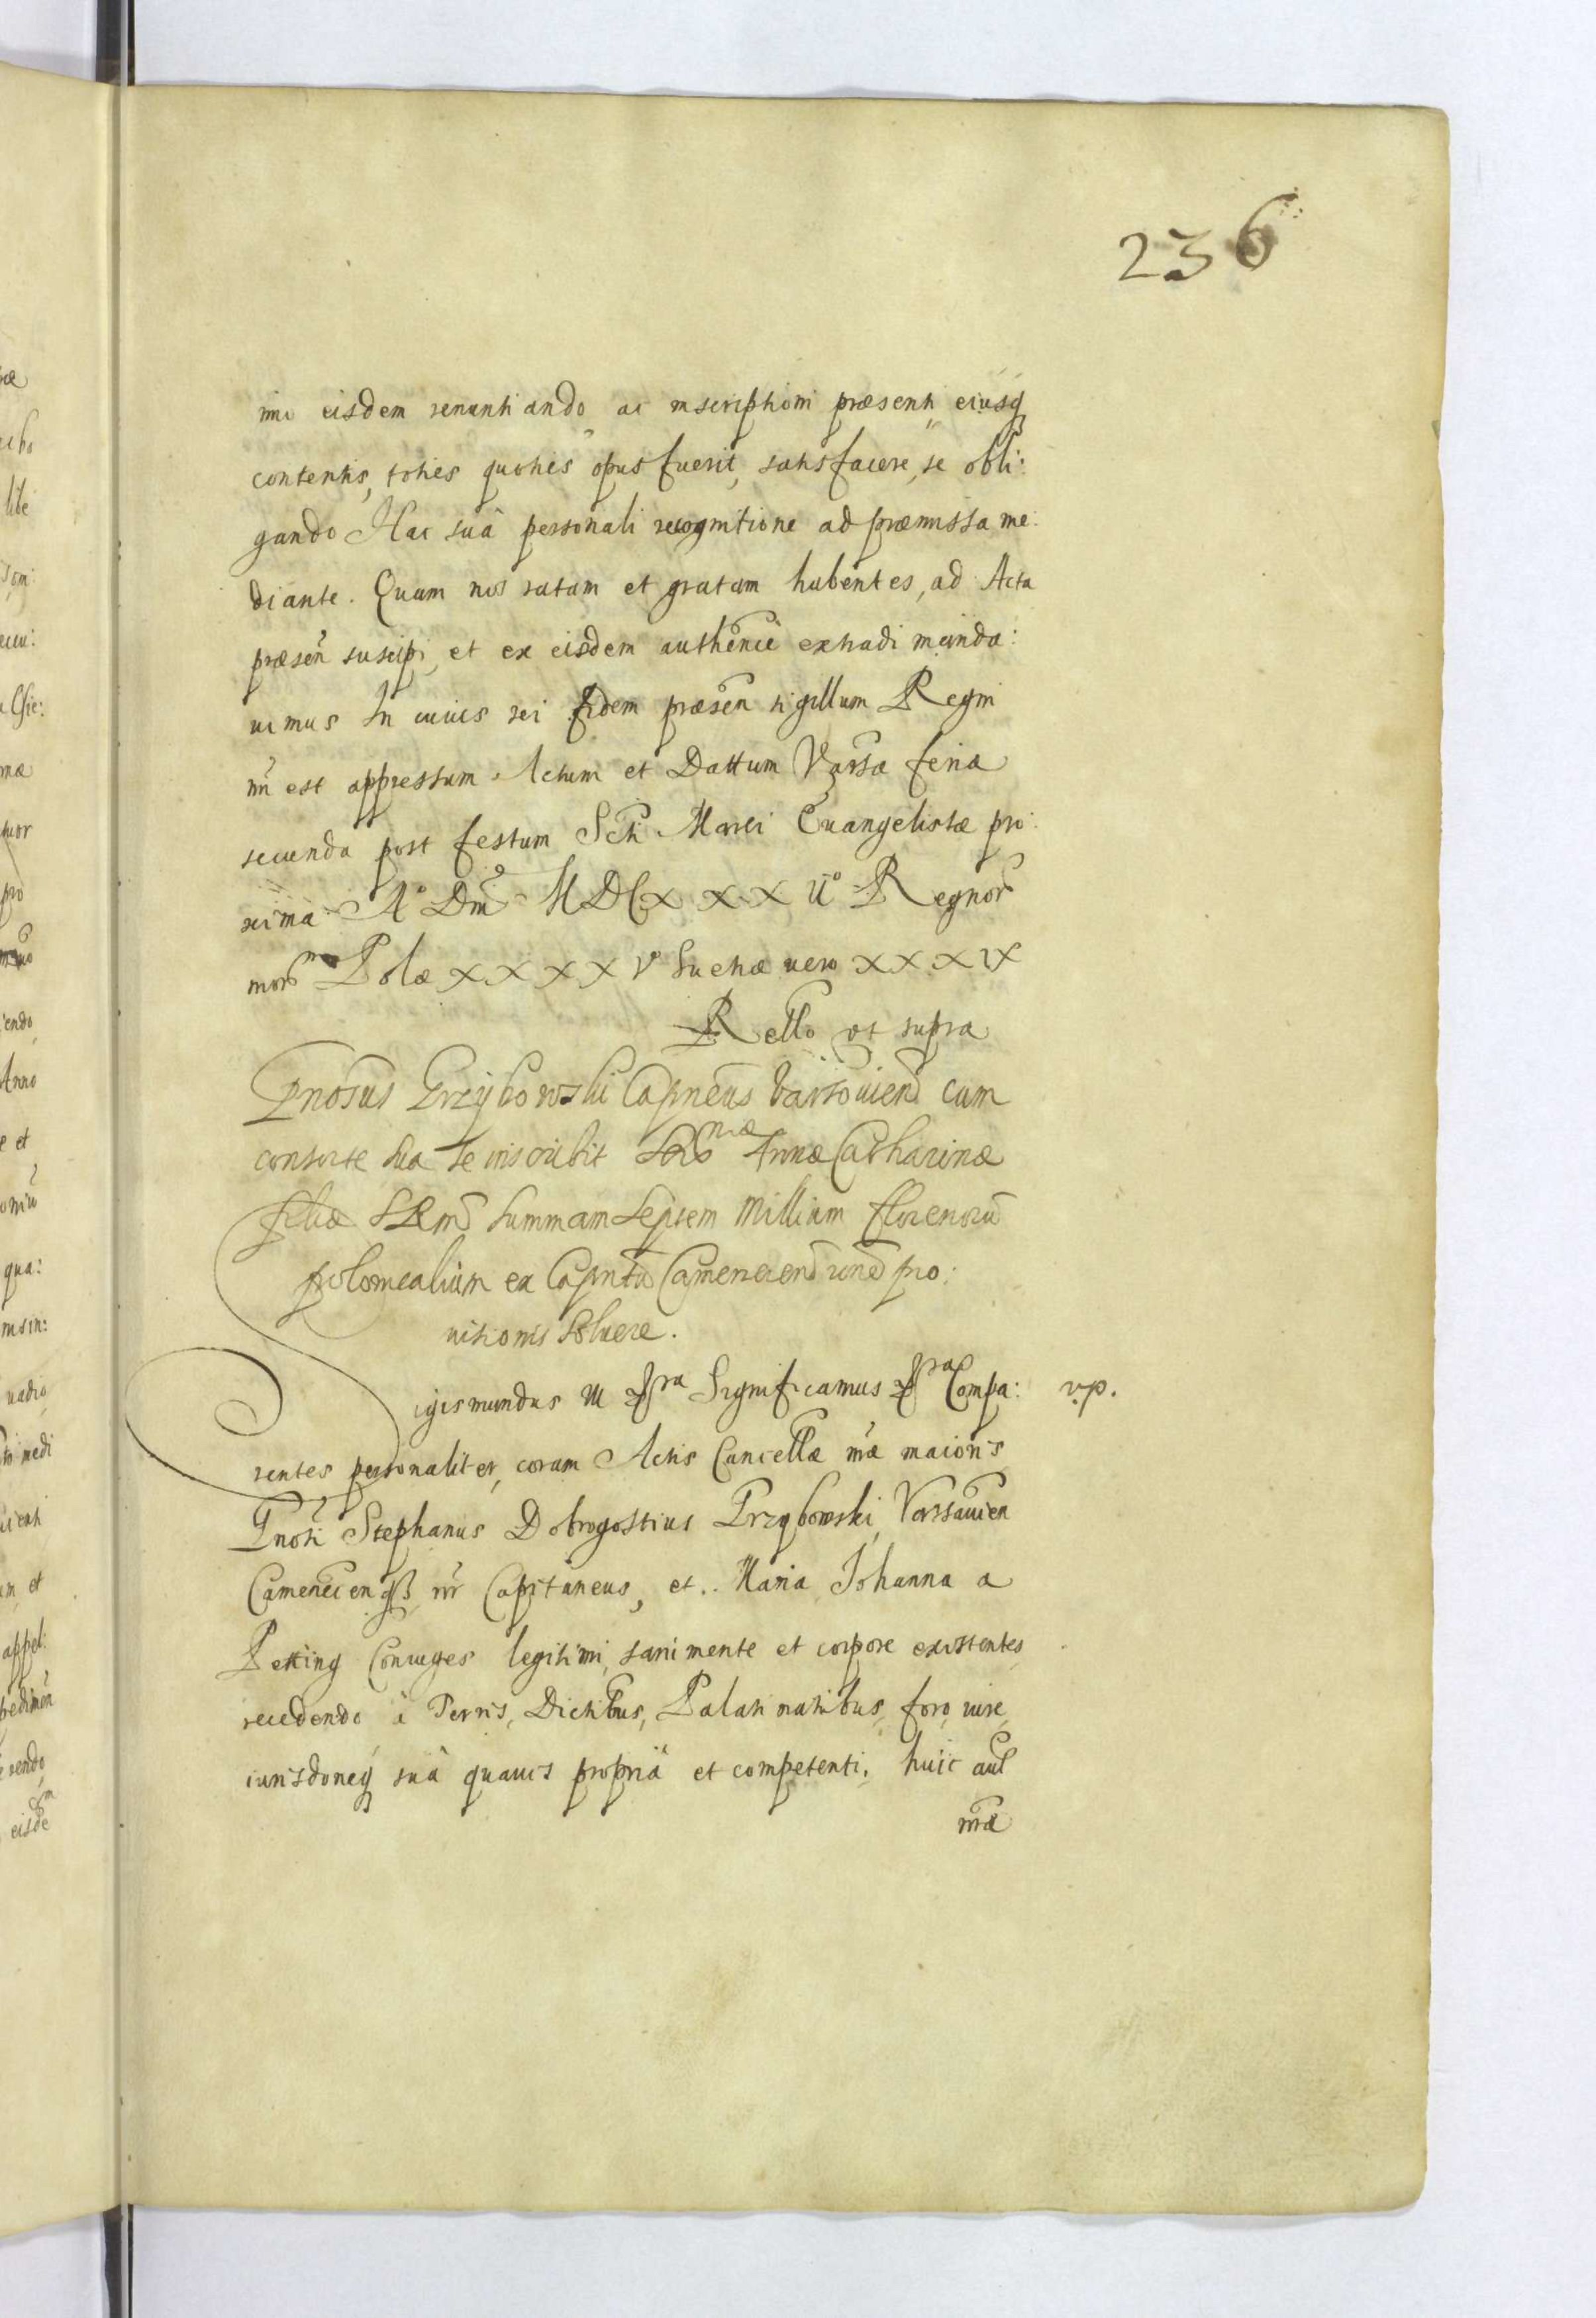 236
imo eisdem renuntiando ac inscriptioni præsenti eiusq
contentis, toties quoties opus fuerit, satisfacere, se obli:
gando Hac suâ personali recognitione ad præmissa me:
diante. Quam nos ratam et gratam habentes, ad Acta
præsen̄ suscipi, et ex eisdem authēnce extradi manda:
uimus In cuius rei fidem præsen̄ sigillum Regni
nr̄i est appressum. Actum et Dattum Varsæ feria
secunda post festum Scti Marci Euangelistæ pro:
xima Aº Dni MDCXXXIIº Regnor
nror Polæ XXXXVº Sueciæ uero XXXIX
Rello ut supra
Gnosus Przybowski Capneus Varsouien cum
consorte sua se inscribit Sermæ Annæ Catharinæ
filiæ SRM summam septem millium florenorū
polonicalium ex Capntu Camenecen rone pro:
uisionis soluere.
Sigismundus III &pra Significamus &pra Compa: v.p.
rentes personaliter, coram Actis Cancellæ nr̄æ maioris
Gnosi Stephanus Dobrogostius Przybowski, Varsauien
Camenecenq nr̄ Capitaneus, et .. Maria Johanna a
Petting Coniuges legitimi, sani mente et corpore existentes,
recedendo à Terris, Dictibus, Palatinatibus, foro, iure,
iurisdoneq suâ quauis propriâ et competenti, huic aut
nr̄æ